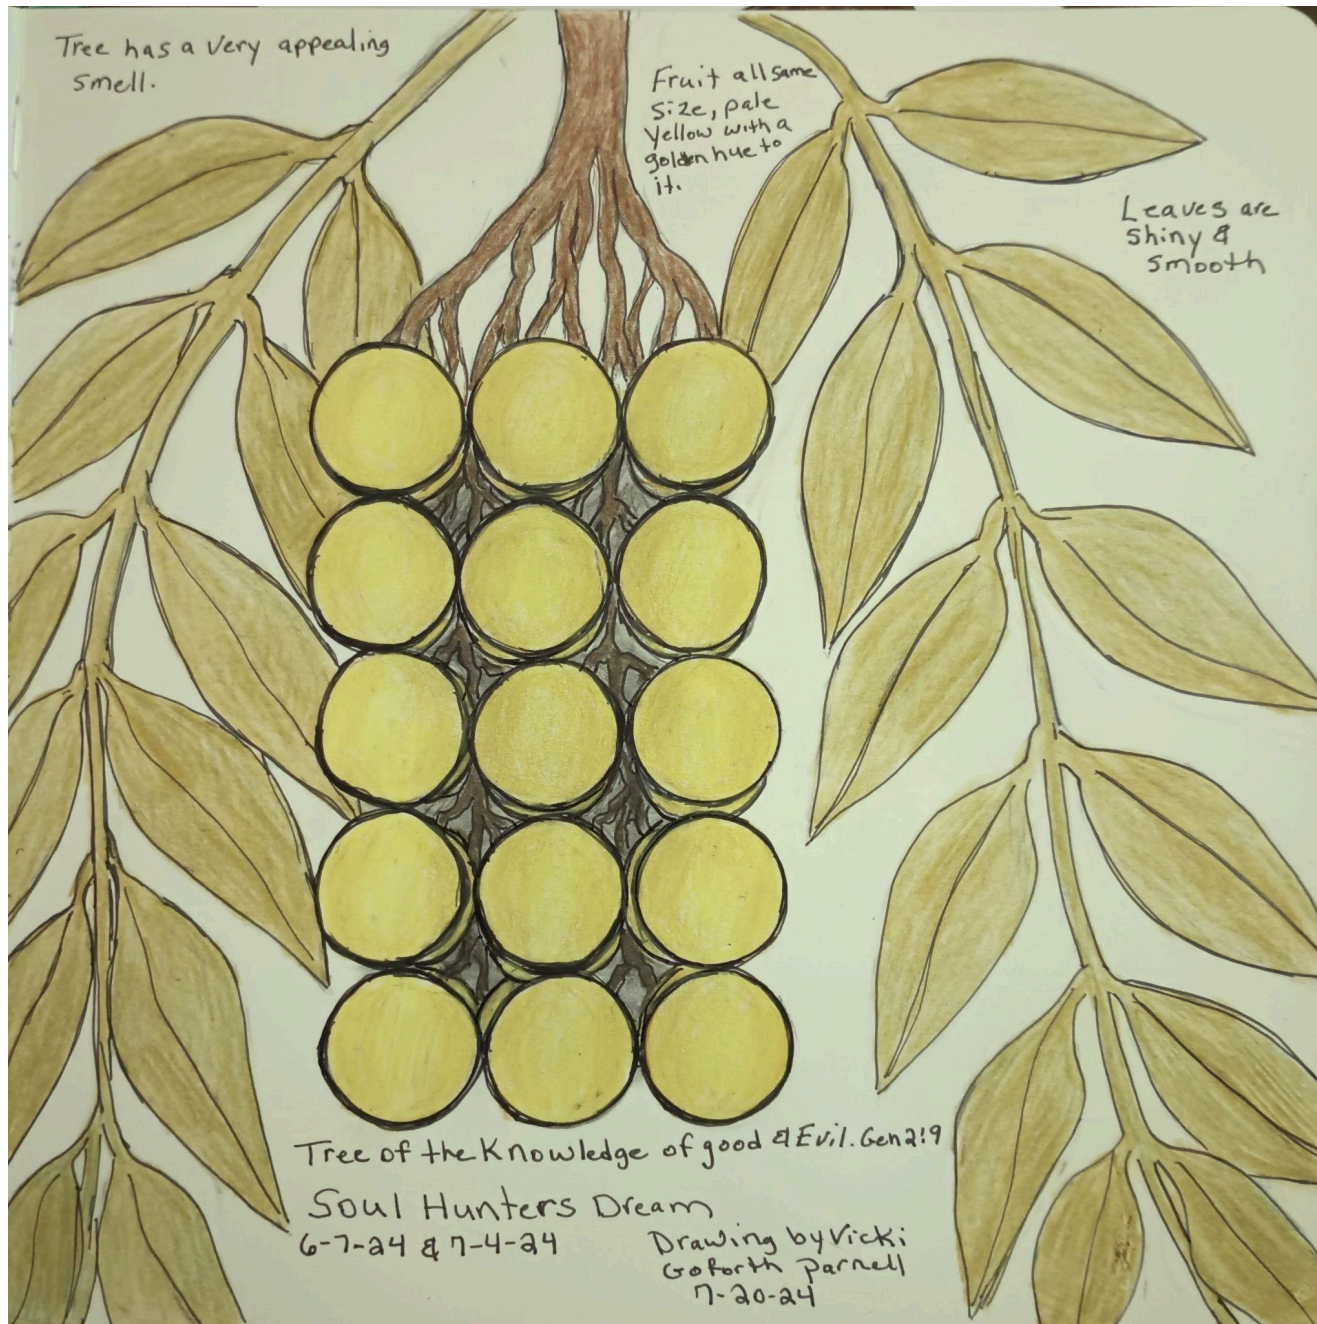 Tree has a very appealing
smell.
Fruit all same
size, pale
yellow with a
golden hue to
it.
Leaves are
shiny &
smooth
Tree of the Knowledge of good & Evil. Gen 2:9
Soul Hunters Dream
6-7-24 & 7-4-24
Drawing by Vicki
Goforth Parnell
7-20-24